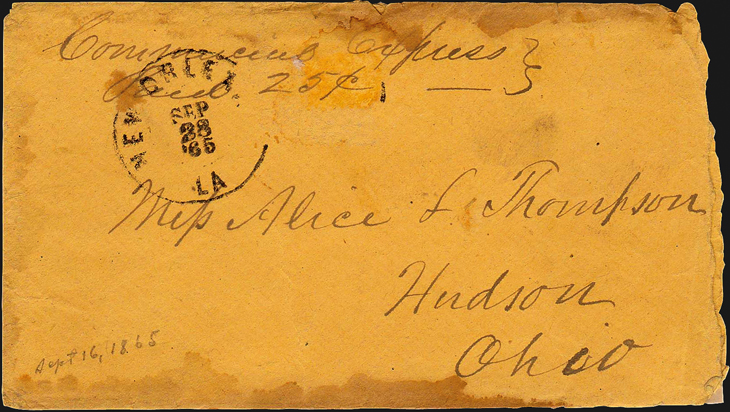 Commercial Express
Paid. 25¢
NEW ORLEA
SEP
28
'65
LA
Miss Alice S. Thompson
Hudson
Ohio
Sept 16, 1865